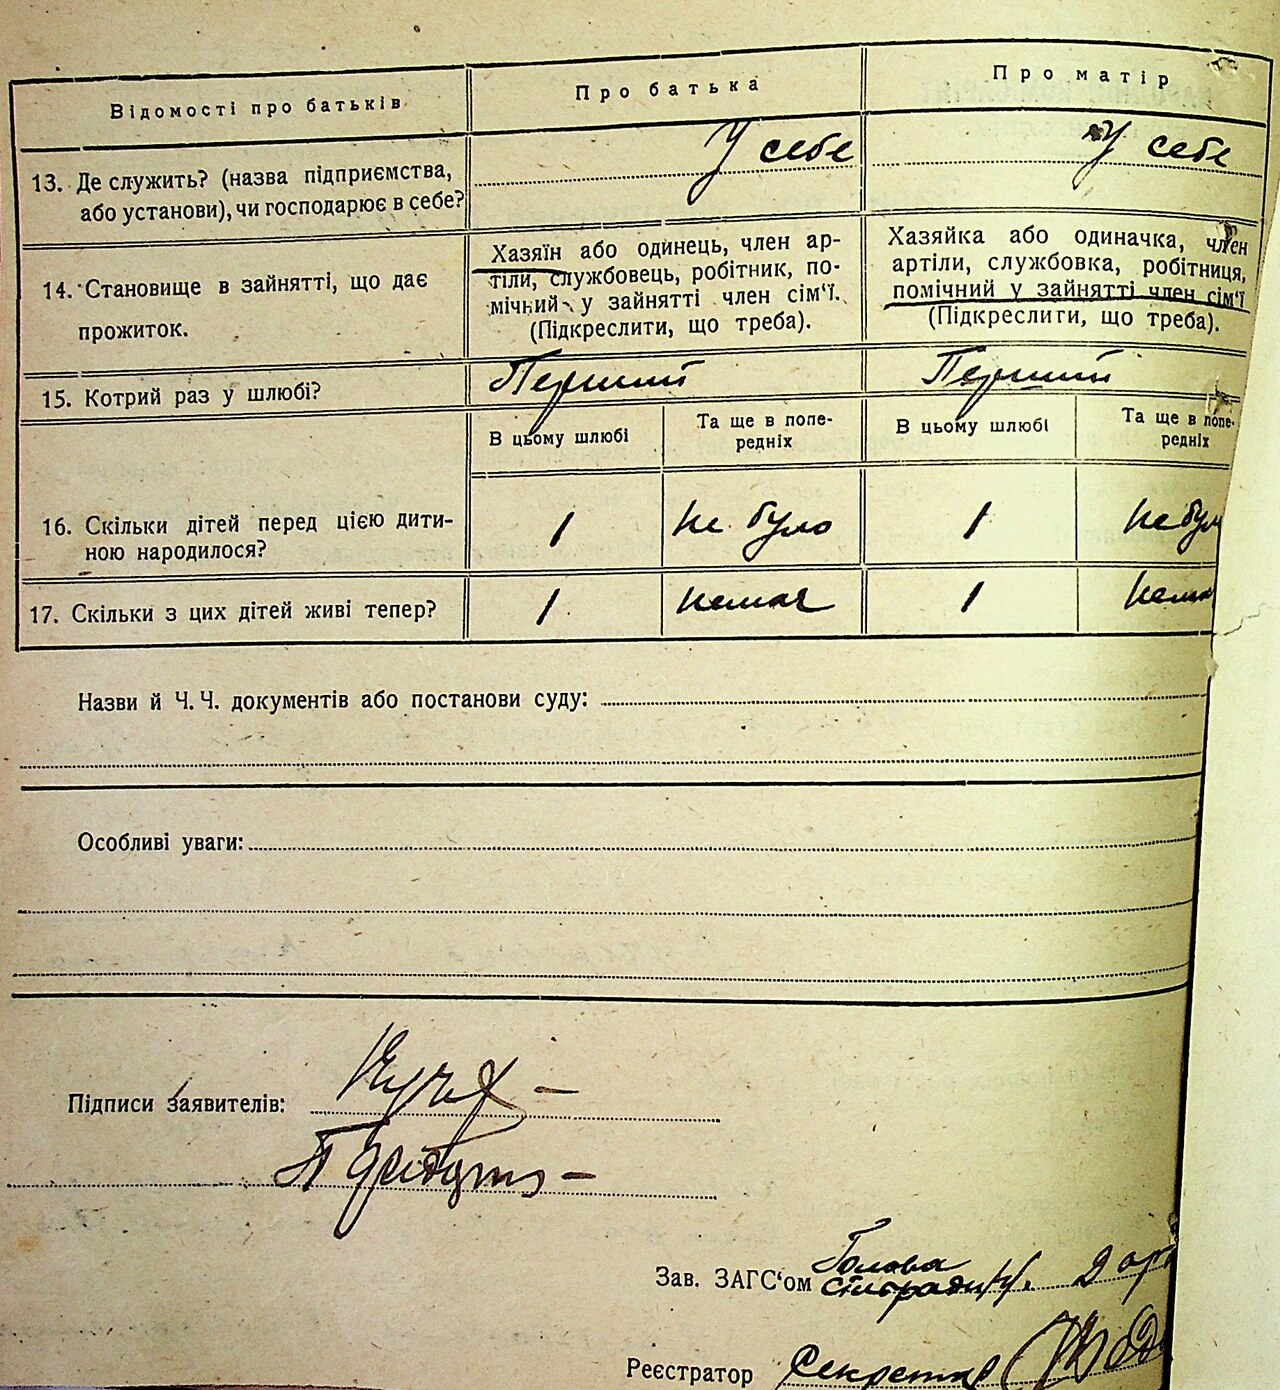 Відомості про батьків
Про батька
Про матір
13. Де служить? (назва підприємства,
або установи), чи господарює в себе?
У себе
У себе
14. Становище в зайнятті, що дає
прожиток.
Хазяїн або одинець, член ар-
тіли, службовець, робітник, по-
мічний у зайнятті член сім‘ї.
(Підкреслити, що треба).
Хазяйка або одиначка, член
артіли, службовка, робітниця,
помічний у зайнятті член сім‘ї
(Підкреслити, що треба).
15. Котрий раз у шлюбі?
Перший
Перший
В цьому шлюбі
Та ще в попе-
редніх
В цьому шлюбі
Та ще в попе-
редніх
16. Скільки дітей перед цією дити-
ною народилося?
1
не було
1
не бул
17. Скільки з цих дітей живі тепер?
1
немає
1
нема
Назви й Ч.Ч. документів або постанови суду:
Особливі уваги:
Підписи заявителів:
Зав. ЗАГС‘ом Голова
Реєстратор Секретар